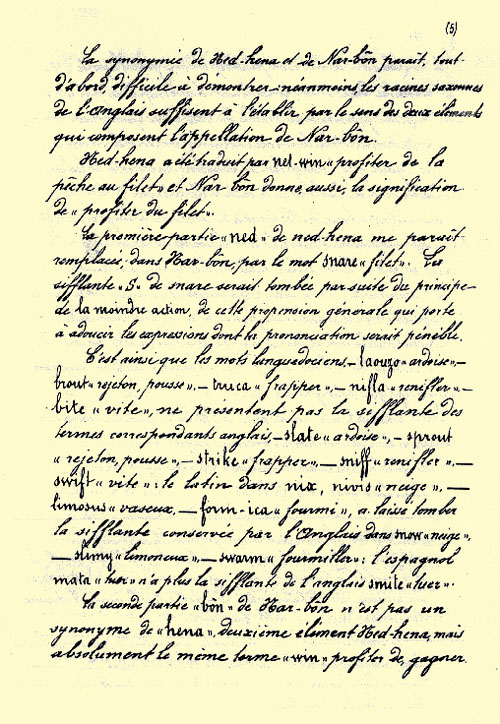 (5)
La synonymie de Ned-hena et de Nar-bôn paraît, tout
d'abord, difficile à démontrer: néanmoins les racines saxonnes
de l'Anglais suffisent à l'établir, par le sens des deux éléments
qui composent l'appellation de Nar-bôn.
Ned-hena a été traduit par net-win « profiter de la
pêche au filet » et Nar bôn donne, aussi, la signification
de « profiter du filet ».
La première partie « ned » de ned-hena me paraît
remplacée, dans Nar-bôn, par le mot snare « filet ». La
sifflante « S » de snare serait tombée par suite du principe
de la moindre action, de cette propension générale qui porte
à adoucir les expressions dont la prononciation serait pénible.
C'est ainsi que les mots languedociens, – laouzo « ardoise », –
brout « rejeton, pousse », – truca « frapper », – nifla « renifler » –
bite « vite », ne présentent pas la sifflante des
termes correspondants anglais, – slate « ardoise », – sprout
« rejeton, pousse », – strike « frapper », – sniff « renifler », –
swift « vite »: le latin dans nix, nivis « neige », –
limosus « vaseux, – form-ica « fourmi », a laissé tomber
la sifflante conservée par l'Anglais dans snow « neige »,
– slimy « limoneux », – swarm « fourmiller »: l'espagnol
mata « tuer » n'a plus la sifflante de l'anglais smite « tuer ».
La seconde partie « bôn » de Nar-bôn n'est pas un
synonyme de « hena », deuxième élément Ned-hena, mais
absolument le même terme « win » profiter de, gagner.